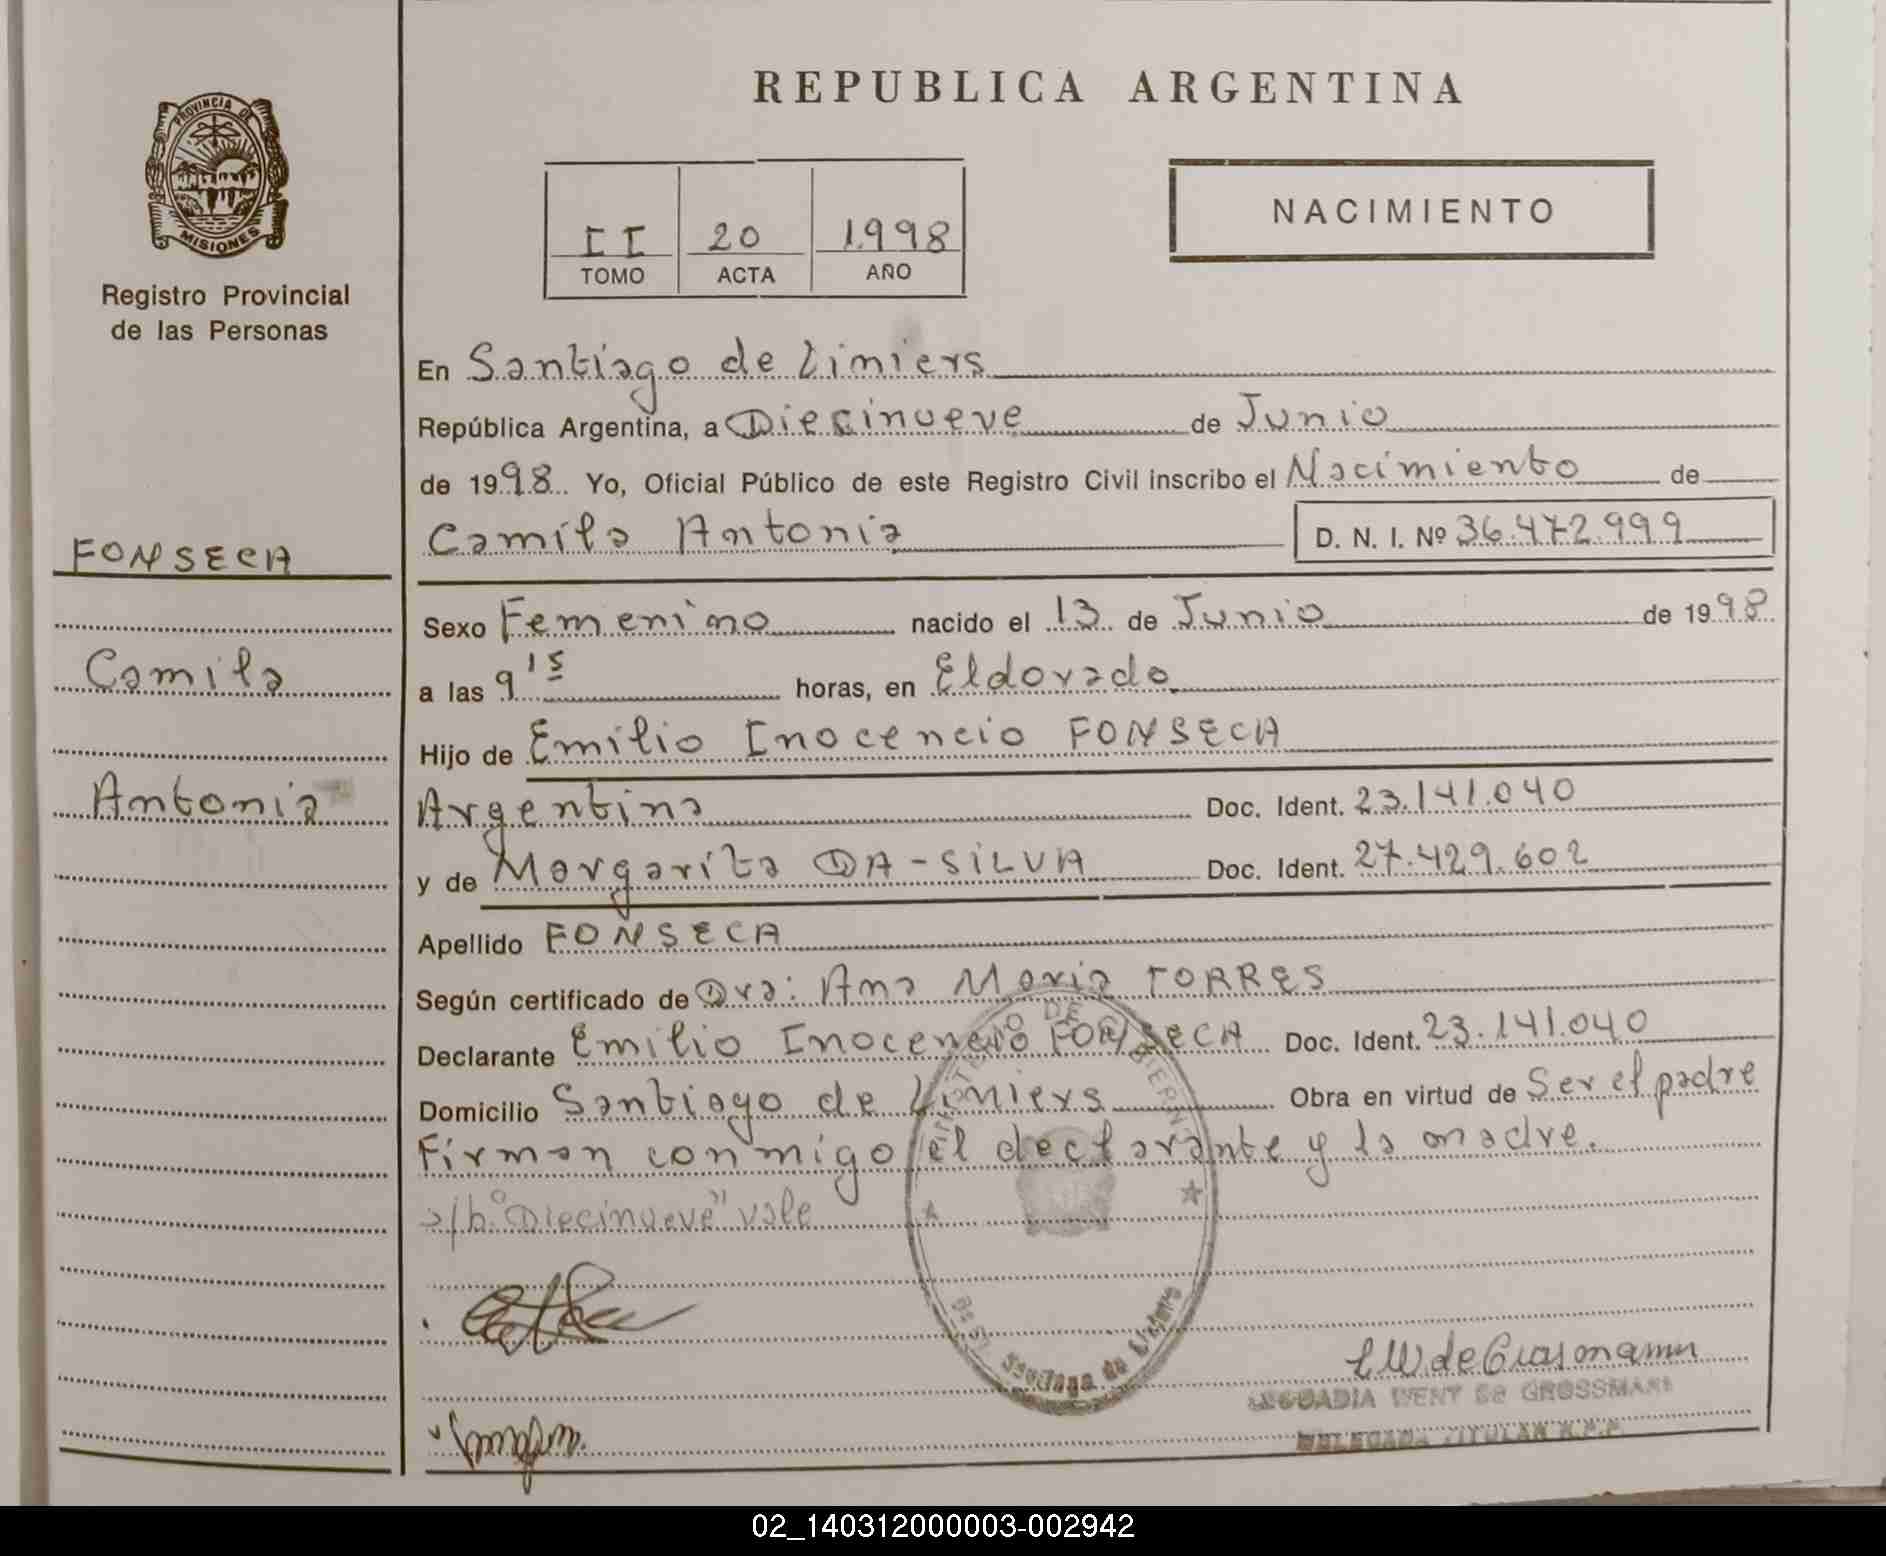 REPUBLICA ARGENTINA
PROVINCIA DE
MISIONES
Registro Provincial
de las Personas
II 20 1998
TOMO ACTA AÑO
NACIMIENTO
En Santiago de Liniers
República Argentina, a Diecinueve de Junio
de 1998 Yo, Oficial Público de este Registro Civil inscribo el Nacimiento de
Camila Antonia D. N. I. Nº 36.472.999
FONSECA
Camila
Antonia
Sexo Femenino nacido el 13 de Junio de 1998
a las 9 15 horas, en Eldorado
Hijo de Emilio Inocencio FONSECA
Argentina Doc. Ident. 23.141.040
y de Margarita DA-SILVA Doc. Ident. 27.429.602
Apellido FONSECA
Según certificado de Dra: Ana Maria TORRES
Declarante Emilio Inocencio FONSECA Doc. Ident. 23.141.040
Domicilio Santiago de Liniers Obra en virtud de Ser el padre
Firman conmigo el declarante y la madre.
s/b "Diecinueve" vale
MINISTERIO DE GOBIERNO
Santiago de Liniers
WENT DE GROSSMANN
DELEGADA TITULAR R.P.P.
02_140312000003-002942